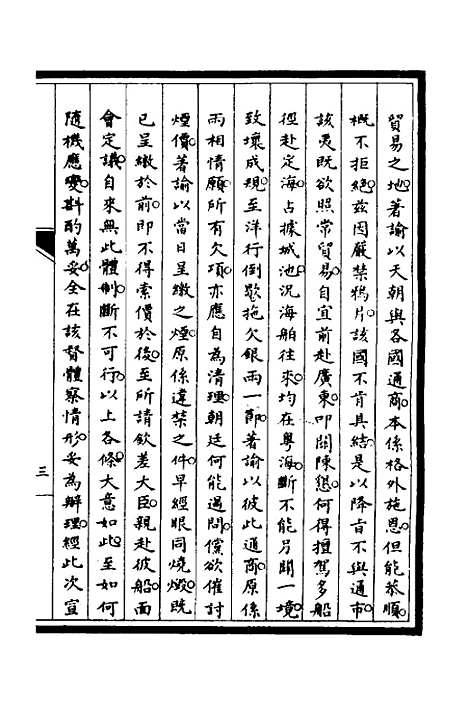 貿易之地著諭以天朝與各國通商本係格外施恩但能恭順
概不拒絕茲因嚴禁鴉片該國不肯具結是以降旨不與通市
該夷既欲照常貿易自宜前赴廣東叩關陳懇何得擅駕多船
徑赴定海占據城池況海舶往來均在粵海斷不能另開一境
致壞成規至洋行倒歇拖欠銀兩一節著諭以彼此通商原係
兩相情願所有欠項亦應自為清理朝廷何能過問儻欲催討
煙價著諭以當日呈繳之煙原係違禁之件早經眼同燒燬既
已呈繳於前即不得索價於後至所請欽差大臣親赴彼船面
會定議自來無此體制斷不可行以上各條大意如此至如何
隨機應變斟酌萬妥全在該督體察情形妥為辦理經此次宣
三